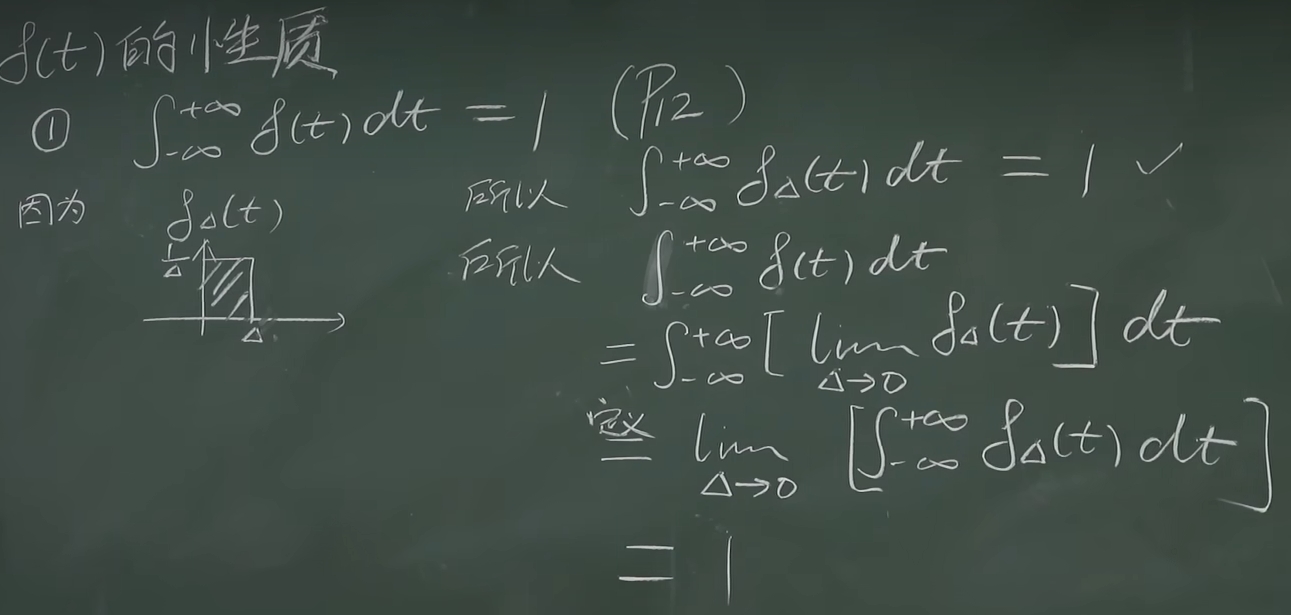 δ(t)的性质
① ∫_{-∞}^{+∞} δ(t) dt = 1 (P12)
因为 δ_Δ(t) 所以 ∫_{-∞}^{+∞} δ_Δ(t) dt = 1 ✓
1/Δ
Δ
所以 ∫_{-∞}^{+∞} δ(t) dt
= ∫_{-∞}^{+∞} [ lim_{Δ→0} δ_Δ(t) ] dt
定义
= lim_{Δ→0} [ ∫_{-∞}^{+∞} δ_Δ(t) dt ]
= 1